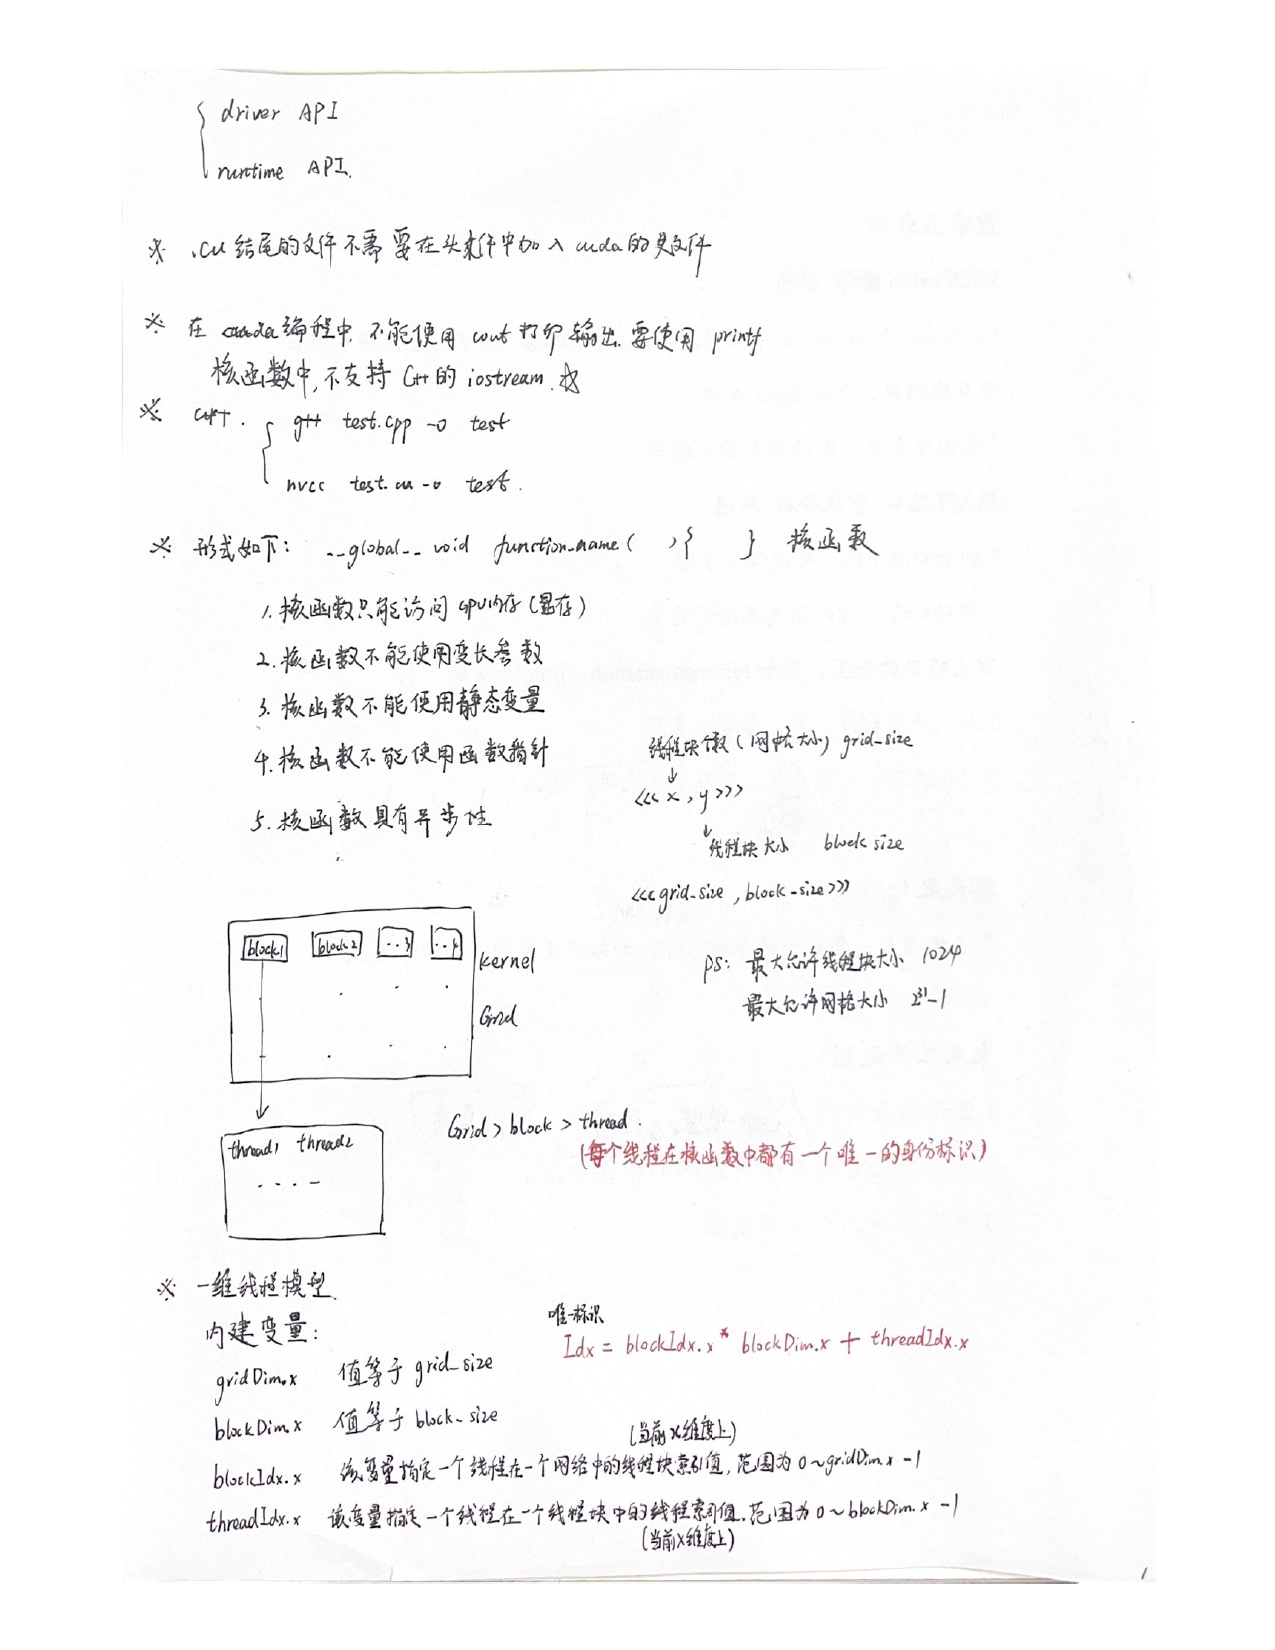 driver API
runtime API.
※ .cu 结尾的文件不需要在头文件中加入 cuda 的头文件
※ 在 cuda 编程中, 不能使用 cout 打印输出. 要使用 printf
核函数中, 不支持 C++ 的 iostream.
※
g++ test.cpp -o test
nvcc test.cu -o test.
※ 形式如下: __global__ void function_name( ){ } 核函数
1. 核函数只能访问 GPU内存(显存)
2. 核函数不能使用变长参数
3. 核函数不能使用静态变量
4. 核函数不能使用函数指针
5. 核函数具有异步性
线程块个数(网格大小) grid_size
<<< x, y >>>
线程块大小 block size
<<<grid_size, block_size>>>
block1 block2 ..3 ..4
kernel
Grid
ps: 最大允许线程块大小 1024
最大允许网格大小 2³¹-1
thread1 thread2
. . . .
Grid > block > thread.
(每个线程在核函数中都有一个唯一的身份标识)
※ 一维线程模型.
内建变量:
唯一标识
Idx = blockIdx.x * blockDim.x + threadIdx.x
gridDim.x 值等于 grid_size
blockDim.x 值等于 block_size
(当前X维度上)
blockIdx.x 该变量指定一个线程在一个网络中的线程块索引值, 范围为 0~gridDim.x -1
threadIdx.x 该变量指定一个线程在一个线程块中的线程索引值. 范围为 0~blockDim.x -1
(当前X维度上)